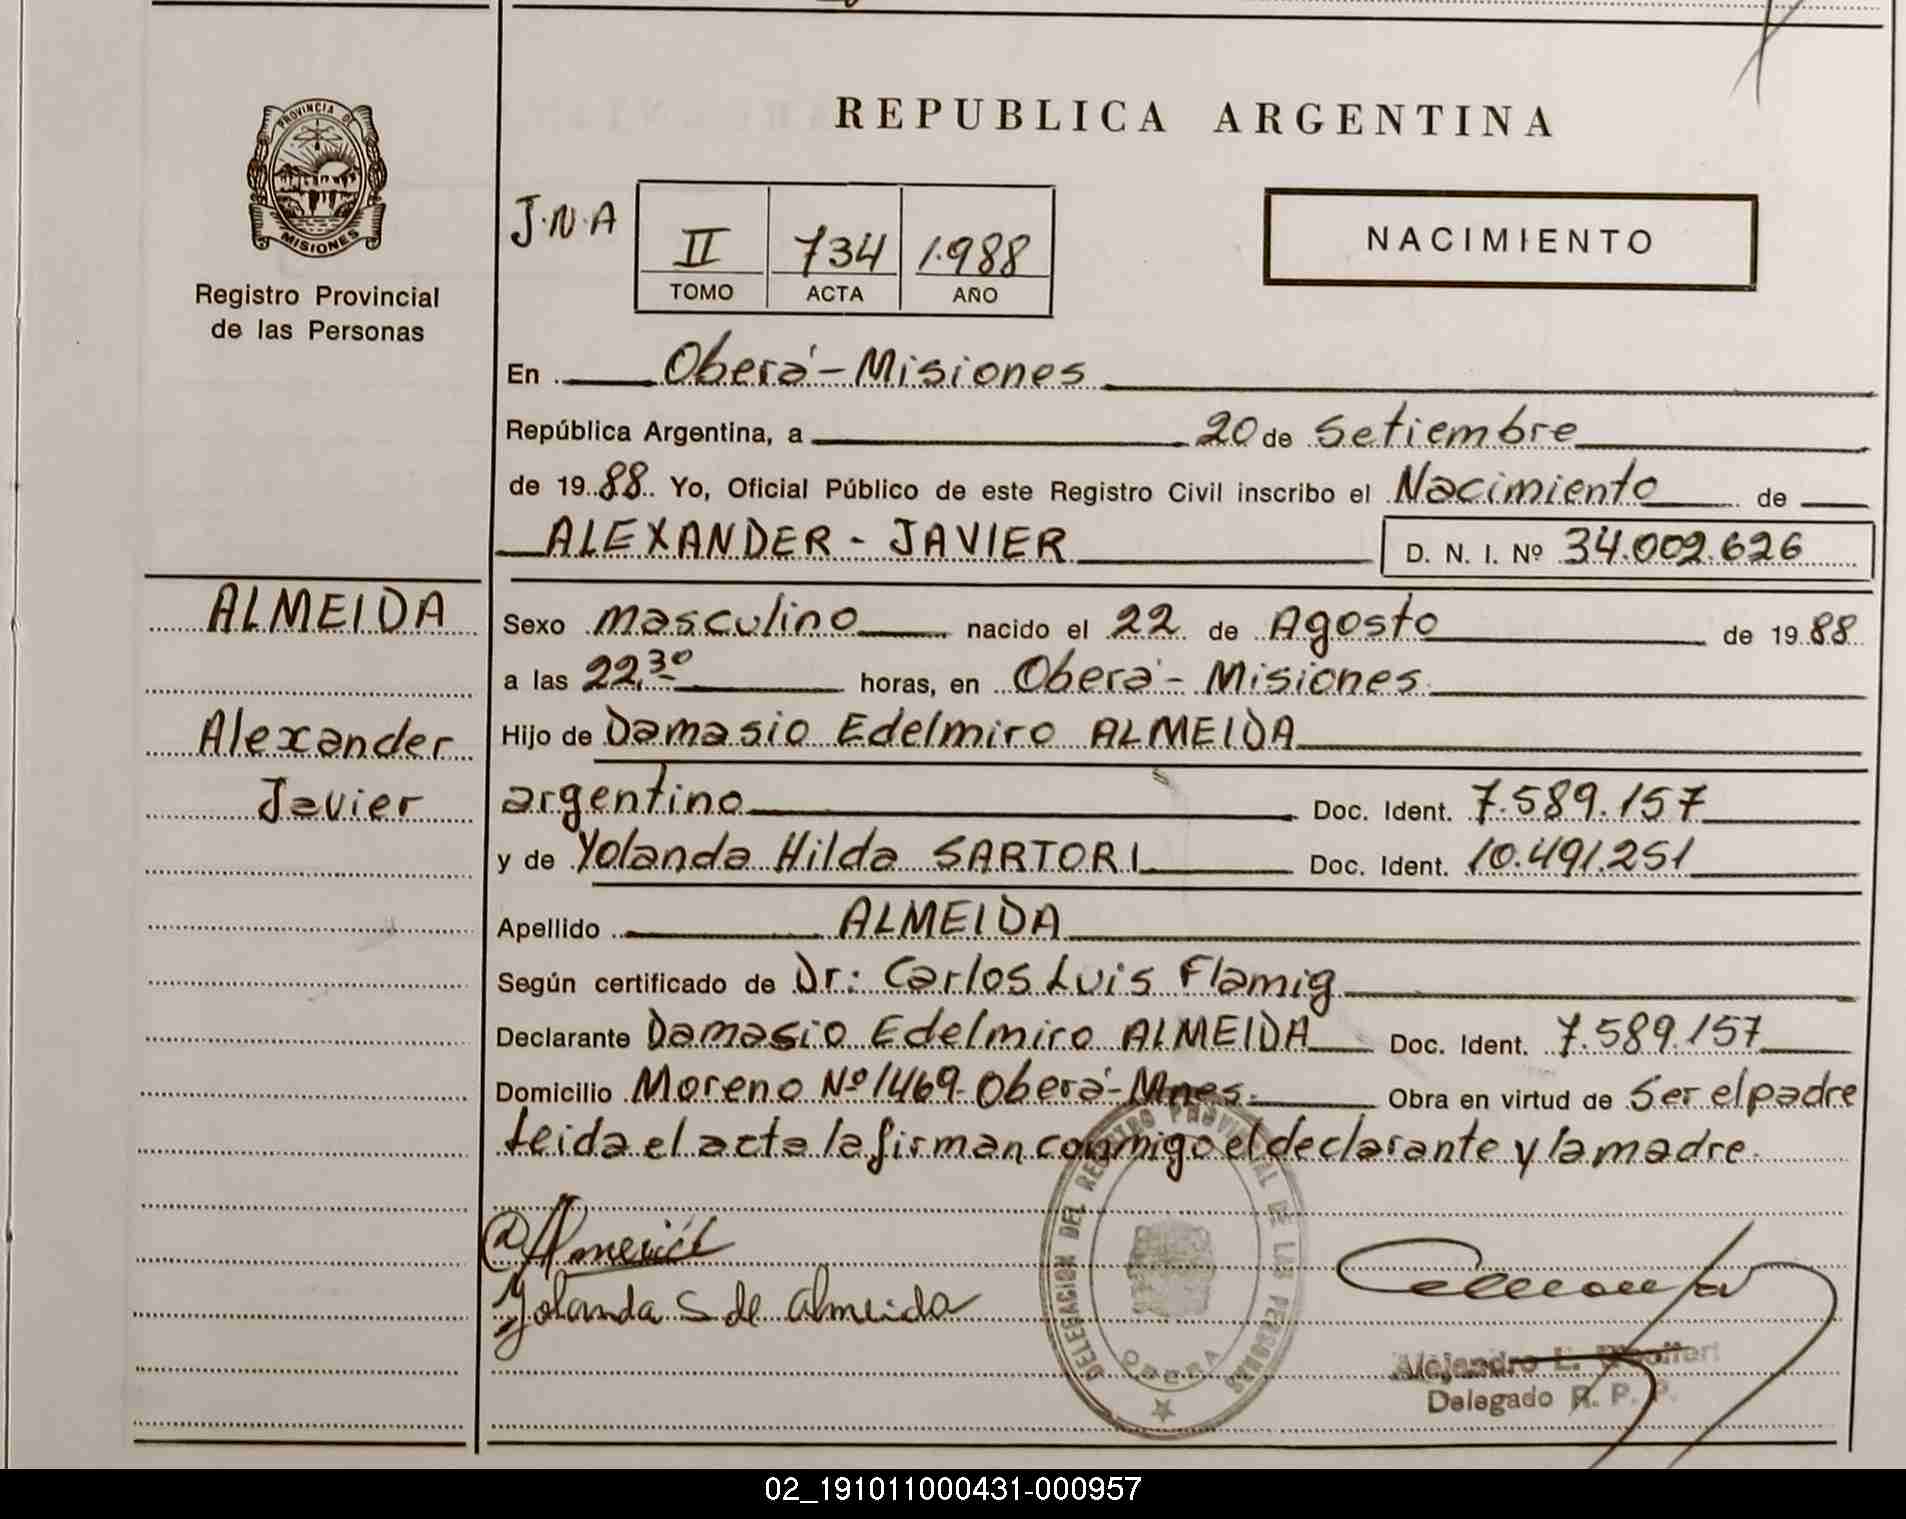 REPUBLICA ARGENTINA
PROVINCIA DE
MISIONES
Registro Provincial
de las Personas
J.N.A
II 734 1.988
TOMO ACTA AÑO
NACIMIENTO
En Oberá - Misiones
República Argentina, a 20 de Setiembre
de 19 88 Yo, Oficial Público de este Registro Civil inscribo el Nacimiento de
ALEXANDER - JAVIER D. N. I. Nº 34.002.626
ALMEIDA
Alexander
Javier
Sexo masculino nacido el 22 de Agosto de 19 88
a las 22,30 horas, en Oberá - Misiones
Hijo de Damasio Edelmiro ALMEIDA
argentino Doc. Ident. 7.589.157
y de Yolanda Hilda SARTORI Doc. Ident. 10.491.251
Apellido ALMEIDA
Según certificado de Dr: Carlos Luis Flamig
Declarante Damasio Edelmiro ALMEIDA Doc. Ident. 7.589.157
Domicilio Moreno Nº 1469 - Oberá - Mnes. Obra en virtud de Ser el padre
Leida el acta la firman conmigo el declarante y la madre.
Yolanda S de Almeida
DELEGACION DEL REGISTRO PROVINCIAL DE LAS PERSONAS
OBERA
Alejandro E.
Delegado R. P. P.
02_191011000431-000957